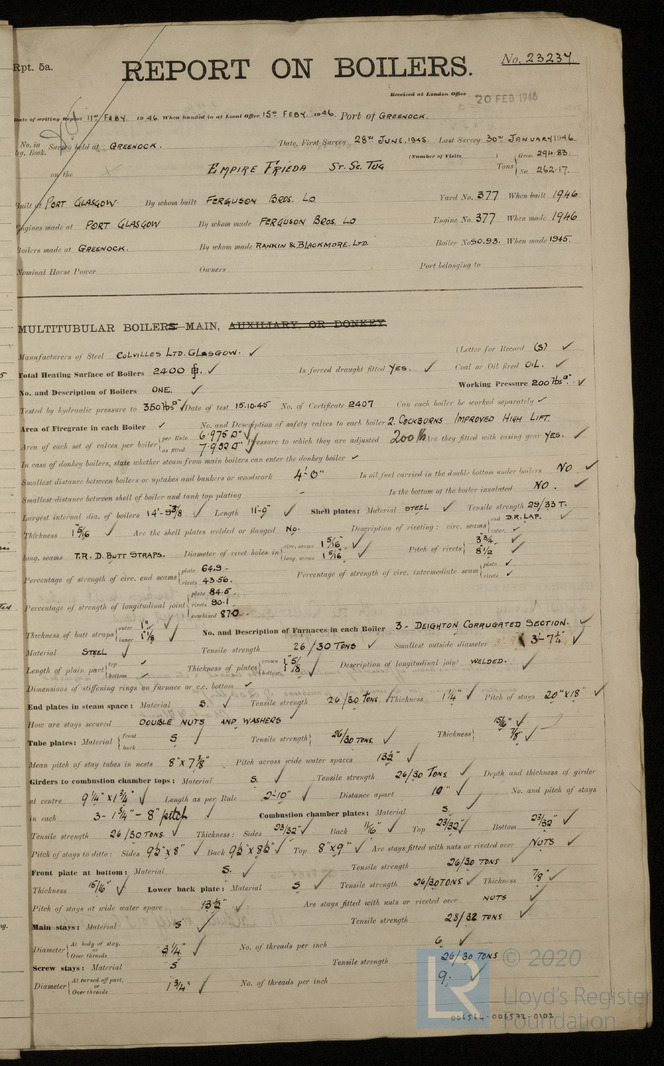 Rpt. 5a.
No. 23237
REPORT ON BOILERS.
Received at London Office 20 FEB 1946
Date of writing Report 11th FEBY. 1946. When handed in at Local Office 15th FEBY. 1946. Port of GREENOCK.
No. in Reg. Book. Survey held at GREENOCK. Date, First Survey 28th JUNE. 1945. Last Survey 30th JANUARY 1946.
on the EMPIRE FRIEDA ST. SC. TUG (Number of Visits ) Tons Gross 294.83. Net 262.17.
Built at PORT GLASGOW By whom built FERGUSON BROS. LD Yard No. 377 When built 1946
Engines made at PORT GLASGOW By whom made FERGUSON BROS. LD Engine No. 377 When made 1946
Boilers made at GREENOCK. By whom made RANKIN & BLACKMORE. LTD. Boiler No. 50.93. When made 1945.
Nominal Horse Power Owners Port belonging to
MULTITUBULAR BOILERS MAIN, AUXILIARY OR DONKEY
Manufacturers of Steel COLVILLES LTD. GLASGOW. ✓ (Letter for Record (S) ✓
Total Heating Surface of Boilers 2400 ✓ Is forced draught fitted YES. ✓ Coal or Oil fired OIL. ✓
No. and Description of Boilers ONE. ✓ Working Pressure 200 lbs ✓
Tested by hydraulic pressure to 350 lbs Date of test 15.10.45 No. of Certificate 2407 Can each boiler be worked separately ✓
Area of Firegrate in each Boiler ✓ No. and Description of safety valves to each boiler 2. COCKBURNS IMPROVED HIGH LIFT.
Area of each set of valves per boiler per Rule 6.975 as fitted Pressure to which they are adjusted 200 lb Are they fitted with easing gear YES. ✓
In case of donkey boilers, state whether steam from main boilers can enter the donkey boiler ✓
Smallest distance between boilers or uptakes and bunkers or woodwork 4'-0" Is oil fuel carried in the double bottom under boilers NO ✓
Smallest distance between shell of boiler and tank top plating - Is the bottom of the boiler insulated NO. ✓
Largest internal dia. of boilers 14'-5 3/8 ✓ Length 11'-9" ✓ Shell plates: Material STEEL ✓ Tensile strength 29/33 T.
Thickness 1 5/16 ✓ Are the shell plates welded or flanged NO. Description of riveting: circ. seams end D.R. LAP. ✓ inter. ✓
long. seams T.R. D. BUTT STRAPS. Diameter of rivet holes in circ. seams 1 5/16 ✓ long. seams 1 5/16 ✓ Pitch of rivets 3 3/4 8 1/2 ✓
Percentage of strength of circ. end seams plate 64.9 rivets 43.56. Percentage of strength of circ. intermediate seam plate ✓ rivets ✓
Percentage of strength of longitudinal joint plate 84.5 rivets 90.1 combined 87.0
Thickness of butt straps outer 1" inner 1 1/8 ✓ No. and Description of Furnaces in each Boiler 3 - DEIGHTON CORRUGATED SECTION. ✓
Material STEEL ✓ Tensile strength 26/30 TONS ✓ Smallest outside diameter 3'-7 1/4" ✓
Length of plain part top ✓ bottom ✓ Thickness of plates crown bottom ✓ Description of longitudinal joint WELDED. ✓
Dimensions of stiffening rings on furnace or c.c. bottom ✓
End plates in steam space: Material S. ✓ Tensile strength 26/30 TONS. Thickness 1 1/4" ✓ Pitch of stays 20" x 18" ✓
How are stays secured DOUBLE NUTS AND WASHERS ✓
Tube plates: Material front back S ✓ Tensile strength 26/30 TONS ✓ Thickness 15/16" 7/8" ✓
Mean pitch of stay tubes in nests 8" x 7 7/8" ✓ Pitch across wide water spaces 13 1/2" ✓
Girders to combustion chamber tops: Material S. ✓ Tensile strength 26/30 TONS ✓ Depth and thickness of girder
at centre 9 1/4" x 1 3/4" ✓ Length as per Rule 2'-10" ✓ Distance apart 10" ✓ No. and pitch of stays
in each 3 - 1 3/4" - 8" pitch Combustion chamber plates: Material S. ✓
Tensile strength 26/30 TONS. ✓ Thickness: Sides 23/32" ✓ Back 11/16" ✓ Top 23/32" ✓ Bottom 23/32" ✓
Pitch of stays to ditto: Sides 9 1/2" x 8" ✓ Back 9 1/2" x 8 1/2" ✓ Top 8" x 9" ✓ Are stays fitted with nuts or riveted over NUTS ✓
Front plate at bottom: Material S. ✓ Tensile strength 26/30 TONS ✓
Thickness 15/16" ✓ Lower back plate: Material S ✓ Tensile strength 26/30 TONS ✓ Thickness 7/8" ✓
Pitch of stays at wide water space 13 1/2" ✓ Are stays fitted with nuts or riveted over NUTS ✓
Main stays: Material S ✓ Tensile strength 28/32 TONS ✓
Diameter At body of stay, or Over threads 3 1/4" ✓ No. of threads per inch 6 ✓
Screw stays: Material S ✓ Tensile strength 26/30 TONS
Diameter At turned off part, or Over threads 1 3/4" ✓ No. of threads per inch 9 ✓
© 2020
LR
Lloyd's Register
Foundation
006564-006572-0102